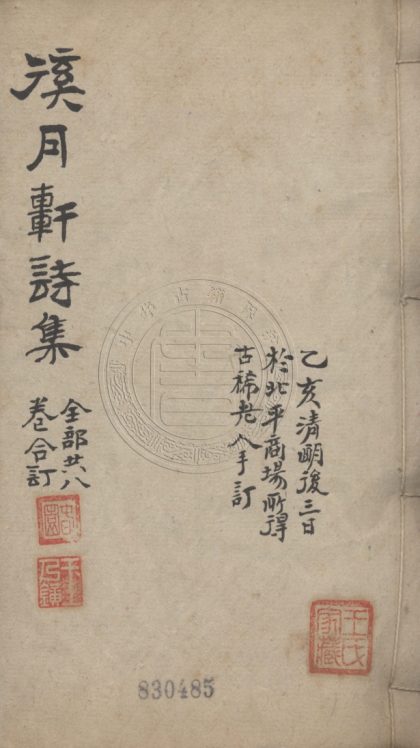 乙亥清明後三日
於北平商場所得
古稀老人手訂
王氏
家藏
徯月軒詩集
全部八
卷合訂
830485